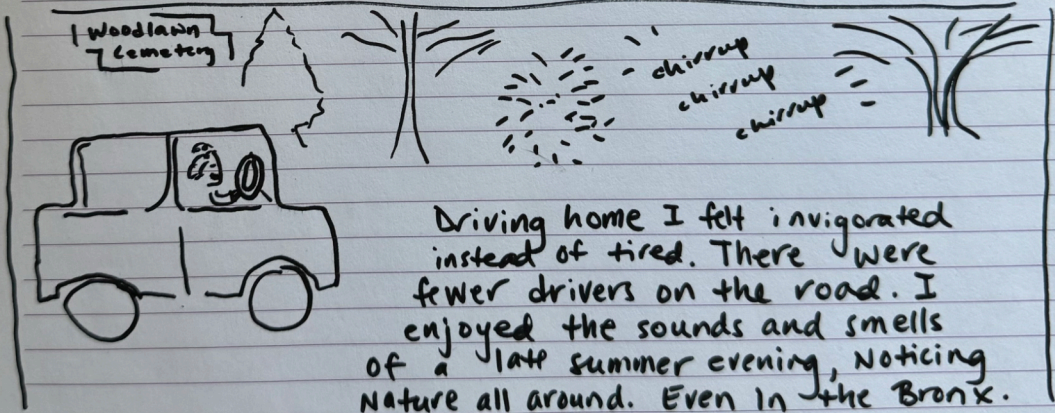 Woodlawn
Cemetery
chirrup
chirrup
chirrup
Driving home I felt invigorated
instead of tired. There were
fewer drivers on the road. I
enjoyed the sounds and smells
of a late summer evening, Noticing
Nature all around. Even in the Bronx.